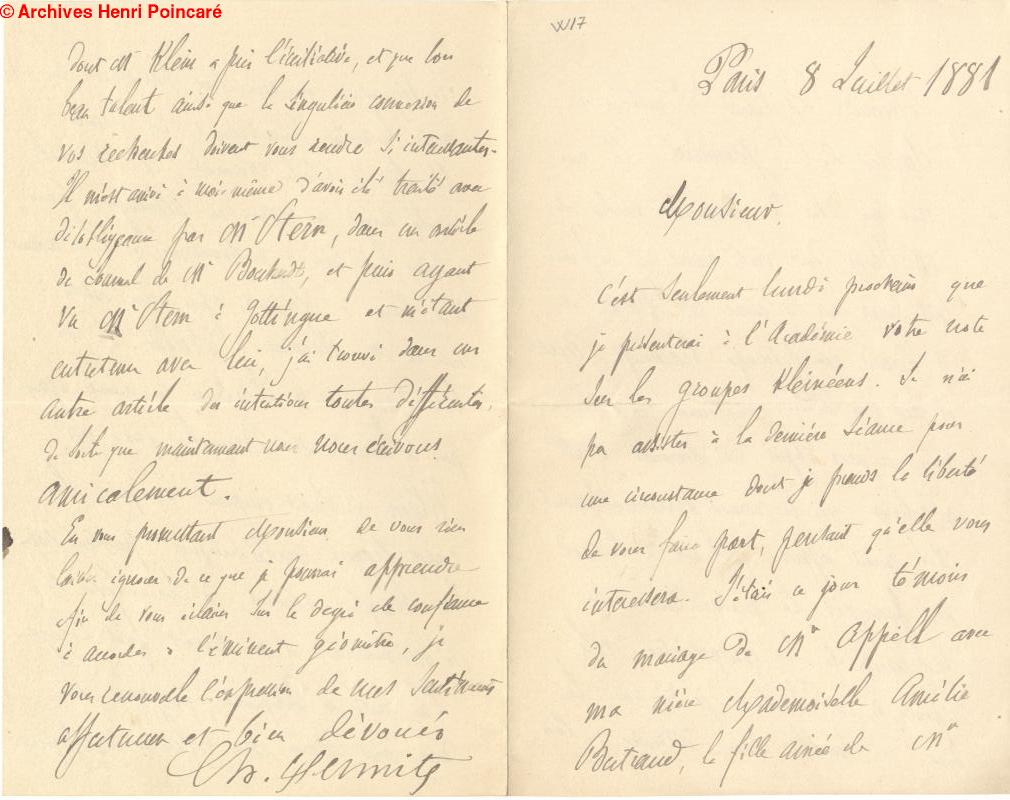 © Archives Henri Poincaré
W17
Paris 8 Juillet 1881
Monsieur,
C'est seulement lundi prochain que
je présenterai à l'Académie votre note
sur les groupes Kleinéens. Je n'ai
pu assister à la dernière séance pour
une circonstance dont je prends la liberté
de vous faire part, pensant qu'elle vous
interessera. J'étais ce jour témoin
du mariage de Mr Appell avec
ma nièce Mademoiselle Amélie
Bertrand, la fille ainée de Mr
dont Mr Klein a pris l'initiative, et que son
beau talent ainsi que la singulière connexion de
vos recherches doivent vous rendre si interessantes.
Il m'est arrivé à moi-même d'avoir été traité avec
désobligeance par Mr Stern, dans un article
du journal de Mr Borchardt, et puis ayant
vu Mr Stern à Göttingue et m'étant
entretenu avec lui, j'ai trouvé dans un
autre article des intentions toutes différentes,
de sorte que maintenant nous nous écrivons
amicalement.
En vous promettant Monsieur de vous rien
laisser ignorer de ce que je pourrai apprendre
afin de vous éclairer sur le degré de confiance
à accorder à l'éminent géomètre, je
vous renouvelle l'expression de mes sentiments
affectueux et bien dévoués
Ch. Hermite